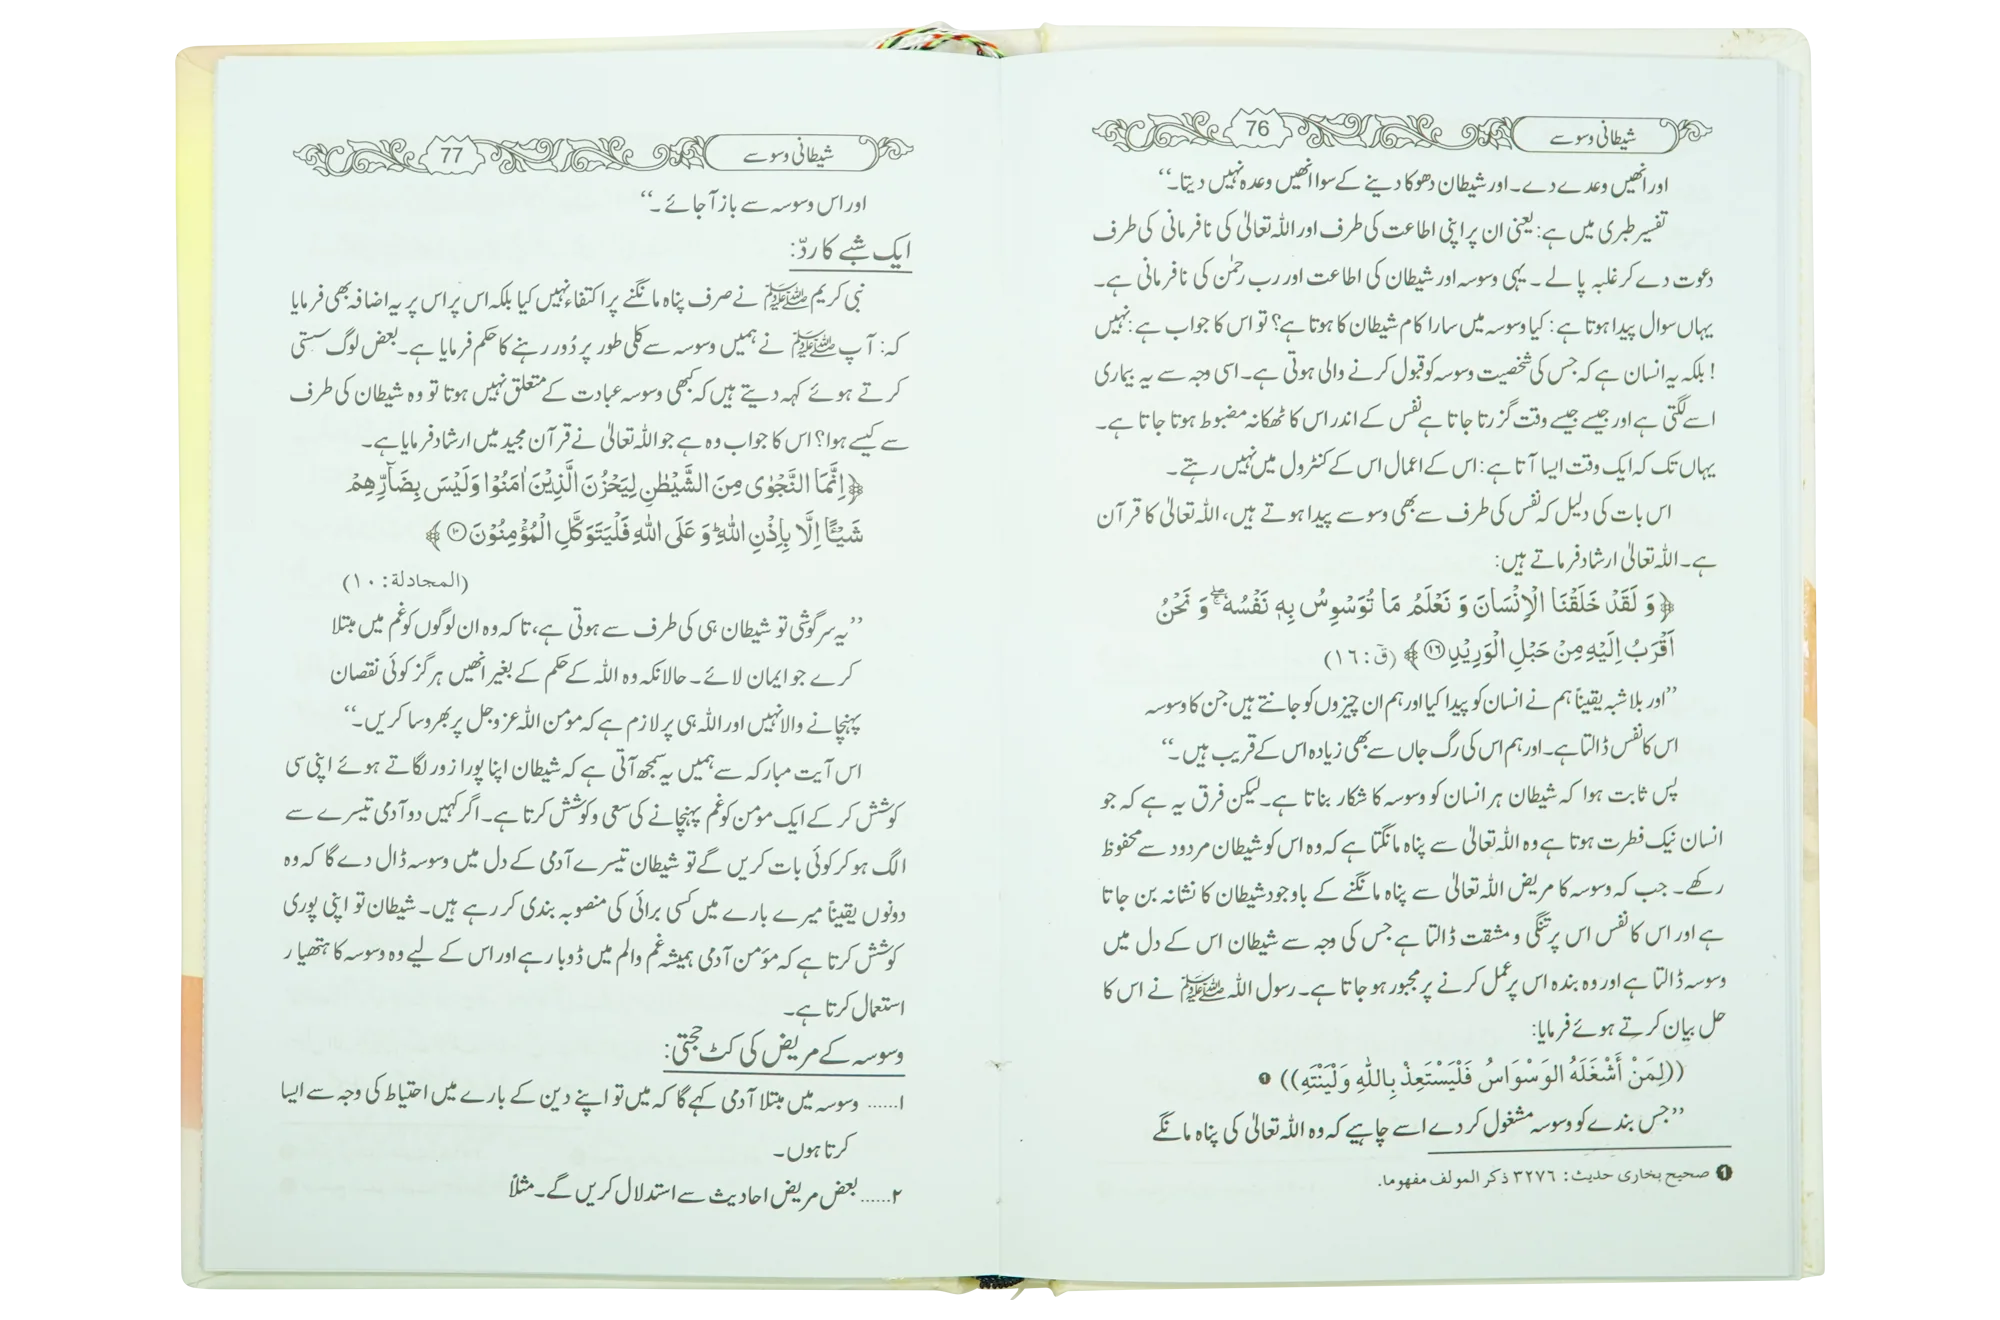 76
شیطانی وسوسے
اور انھیں وعدے دے۔ اور شیطان دھوکا دینے کے سوا انھیں وعدہ نہیں دیتا۔‘‘
تفسیر طبری میں ہے: یعنی ان پر اپنی اطاعت کی طرف اور اللہ تعالیٰ کی نافرمانی کی طرف
دعوت دے کر غلبہ پا لے ۔ یہی وسوسہ اور شیطان کی اطاعت اور رب رحمٰن کی نافرمانی ہے۔
یہاں سوال پیدا ہوتا ہے: کیا وسوسہ میں سارا کام شیطان کا ہوتا ہے؟ تو اس کا جواب ہے: نہیں
! بلکہ یہ انسان ہے کہ جس کی شخصیت وسوسہ کو قبول کرنے والی ہوتی ہے۔ اسی وجہ سے یہ بیماری
اسے لگتی ہے اور جیسے جیسے وقت گزرتا جاتا ہے نفس کے اندر اس کا ٹھکانہ مضبوط ہوتا جاتا ہے۔
یہاں تک کہ ایک وقت ایسا آتا ہے: اس کے اعمال اس کے کنٹرول میں نہیں رہتے۔
اس بات کی دلیل کہ نفس کی طرف سے بھی وسوسے پیدا ہوتے ہیں، اللہ تعالیٰ کا قرآن
ہے۔ اللہ تعالیٰ ارشاد فرماتے ہیں:
﴿وَ لَقَدْ خَلَقْنَا الْاِنْسَانَ وَ نَعْلَمُ مَا تُوَسْوِسُ بِهٖ نَفْسُهٗ ۖۚ وَ نَحْنُ
اَقْرَبُ اِلَيْهِ مِنْ حَبْلِ الْوَرِيْدِ ۝۱۶﴾ (قٓ: ۱۶)
’’اور بلاشبہ یقیناً ہم نے انسان کو پیدا کیا اور ہم ان چیزوں کو جانتے ہیں جن کا وسوسہ
اس کا نفس ڈالتا ہے۔ اور ہم اس کی رگ جاں سے بھی زیادہ اس کے قریب ہیں۔‘‘
پس ثابت ہوا کہ شیطان ہر انسان کو وسوسہ کا شکار بناتا ہے۔ لیکن فرق یہ ہے کہ جو
انسان نیک فطرت ہوتا ہے وہ اللہ تعالیٰ سے پناہ مانگتا ہے کہ وہ اس کو شیطان مردود سے محفوظ
رکھے۔ جب کہ وسوسہ کا مریض اللہ تعالیٰ سے پناہ مانگنے کے باوجود شیطان کا نشانہ بن جاتا
ہے اور اس کا نفس اس پر تنگی و مشقت ڈالتا ہے جس کی وجہ سے شیطان اس کے دل میں
وسوسہ ڈالتا ہے اور وہ بندہ اس پر عمل کرنے پر مجبور ہو جاتا ہے۔ رسول اللہ ﷺ نے اس کا
حل بیان کرتے ہوئے فرمایا:
((لِمَنْ أَشْغَلَهُ الوَسْوَاسُ فَلْيَسْتَعِذْ بِاللّٰهِ وَلْيَنْتَهِ)) ❶
’’جس بندے کو وسوسہ مشغول کر دے اسے چاہیے کہ وہ اللہ تعالیٰ کی پناہ مانگے
❶ صحیح بخاری حدیث: ۳۲۷۶ ذکر المولف مفهوما.
77
شیطانی وسوسے
اور اس وسوسہ سے باز آجائے۔‘‘
ایک شبے کا ردّ:
نبی کریم ﷺ نے صرف پناہ مانگنے پر اکتفاء نہیں کیا بلکہ اس پر اس پر یہ اضافہ بھی فرمایا
کہ: آپ ﷺ نے ہمیں وسوسہ سے کلی طور پر دُور رہنے کا حکم فرمایا ہے۔ بعض لوگ سستی
کرتے ہوئے کہہ دیتے ہیں کہ کبھی وسوسہ عبادت کے متعلق نہیں ہوتا تو وہ شیطان کی طرف
سے کیسے ہوا؟ اس کا جواب وہ ہے جو اللہ تعالیٰ نے قرآن مجید میں ارشاد فرمایا ہے۔
﴿اِنَّمَا النَّجْوٰى مِنَ الشَّيْطٰنِ لِيَحْزُنَ الَّذِيْنَ اٰمَنُوْا وَلَيْسَ بِضَآرِّهِمْ
شَيْـًٔا اِلَّا بِاِذْنِ اللّٰهِ ؕ وَ عَلَى اللّٰهِ فَلْيَتَوَكَّلِ الْمُؤْمِنُوْنَ ۝۱۰﴾
(المجادلة: ۱۰)
’’یہ سرگوشی تو شیطان ہی کی طرف سے ہوتی ہے، تا کہ وہ ان لوگوں کو غم میں مبتلا
کرے جو ایمان لائے۔ حالانکہ وہ اللہ کے حکم کے بغیر انھیں ہرگز کوئی نقصان
پہنچانے والا نہیں اور اللہ ہی پر لازم ہے کہ مومن اللہ عزوجل پر بھروسا کریں۔‘‘
اس آیت مبارکہ سے ہمیں یہ سمجھ آتی ہے کہ شیطان اپنا پورا زور لگاتے ہوئے اپنی سی
کوشش کر کے ایک مومن کو غم پہنچانے کی سعی و کوشش کرتا ہے۔ اگر کہیں دو آدمی تیسرے سے
الگ ہو کر کوئی بات کریں گے تو شیطان تیسرے آدمی کے دل میں وسوسہ ڈال دے گا کہ وہ
دونوں یقیناً میرے بارے میں کسی برائی کی منصوبہ بندی کر رہے ہیں۔ شیطان تو اپنی پوری
کوشش کرتا ہے کہ مؤمن آدمی ہمیشہ غم و الم میں ڈوبا رہے اور اس کے لیے وہ وسوسہ کا ہتھیار
استعمال کرتا ہے۔
وسوسہ کے مریض کی کٹ حجتی:
۱...... وسوسہ میں مبتلا آدمی کہے گا کہ میں تو اپنے دین کے بارے میں احتیاط کی وجہ سے ایسا
کرتا ہوں۔
۲...... بعض مریض احادیث سے استدلال کریں گے۔ مثلاً